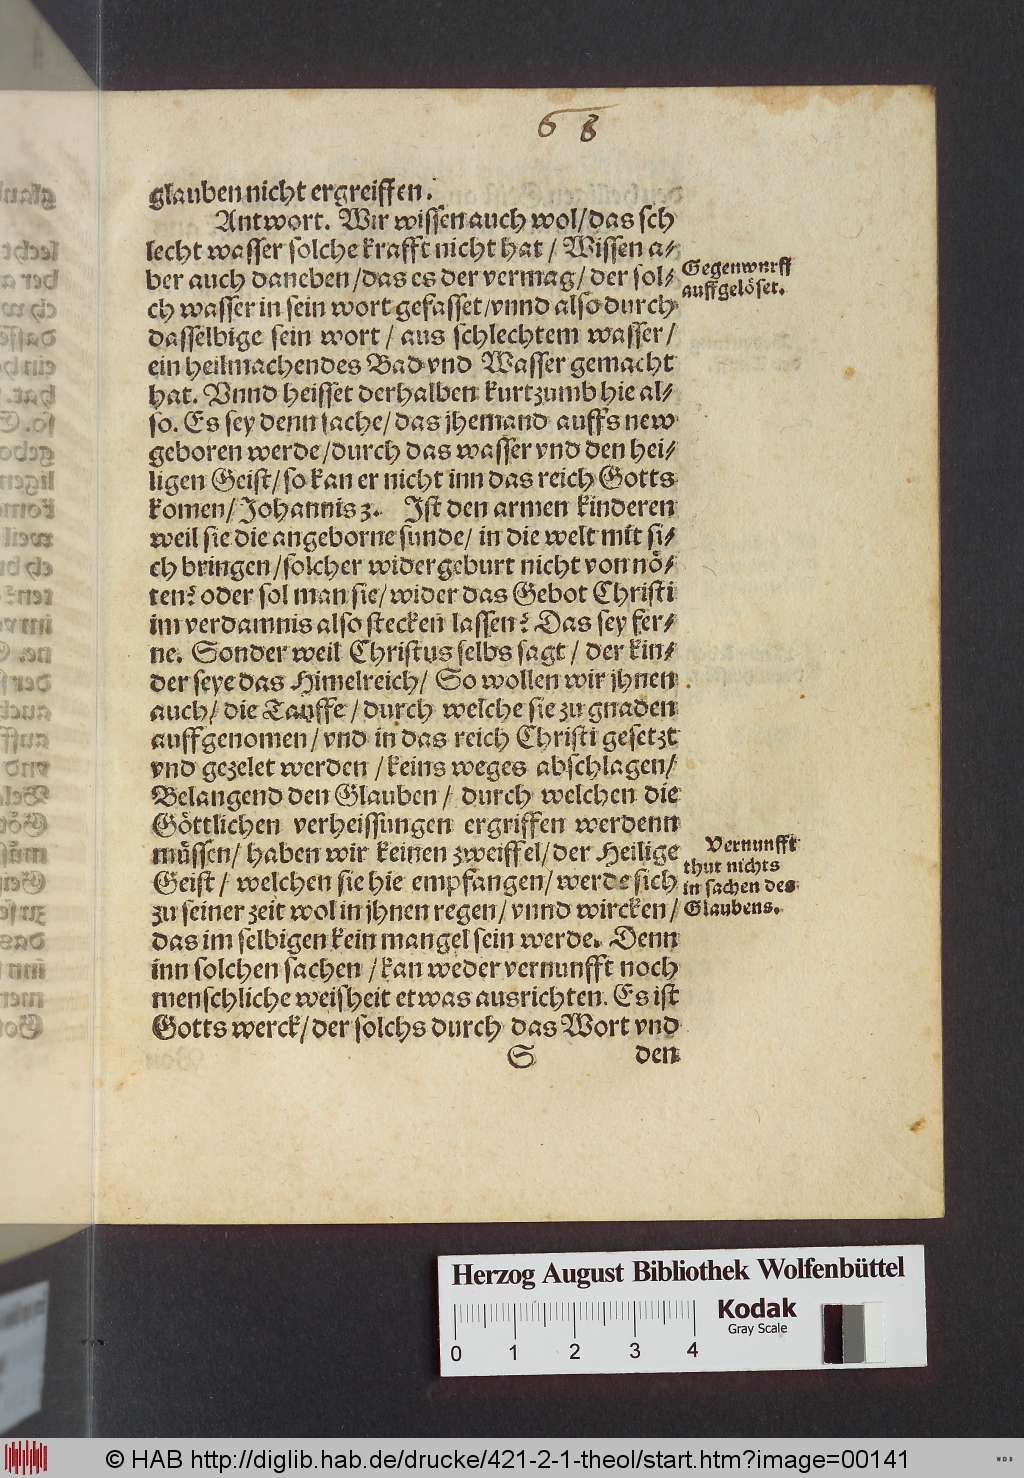 68
glauben nicht ergreiffen.
Antwort. Wir wissen auch wol/das sch
lecht wasser solche krafft nicht hat / Wissen a⸗
ber auch daneben/das es der vermag/der sol⸗
ch wasser in sein wort gefasset/vnnd also durch
dasselbige sein wort/ aus schlechtem wasser/
ein heilmachendes Bad vnd Wasser gemacht
hat. Vnnd heisset derhalben kurtzumb hie al⸗
so. Es sey denn sache/das jhemand auffs new
geboren werde/durch das wasser vnd den hei⸗
ligen Geist/so kan er nicht inn das reich Gotts
komen/Johannis 3. Ist den armen kinderen
weil sie die angeborne sunde/ in die welt mit si⸗
ch bringen/solcher widergeburt nicht von nö⸗
ten? oder sol man sie/wider das Gebot Christi
im verdamnis also stecken lassen? Das sey fer⸗
ne. Sonder weil Christus selbs sagt/ der kin⸗
der seye das Himelreich/ So wollen wir jhnen
auch/ die Tauffe/durch welche sie zu gnaden
auffgenomen/vnd in das reich Christi gesetzt
vnd gezelet werden/keins weges abschlagen/
Belangend den Glauben/ durch welchen die
Göttlichen verheissungen ergriffen werdenn
müssen/ haben wir keinen zweiffel/der Heilige
Geist/ welchen sie hie empfangen/werde sich
zu seiner zeit wol in jhnen regen/vnnd wircken/
das im selbigen kein mangel sein werde. Denn
inn solchen sachen/kan weder vernunfft noch
menschliche weisheit etwas ausrichten. Es ist
Gotts werck/der solchs durch das Wort vnd
S den
Gegenwurff
auffgelöset.
Vernunfft
thut nichts
in sachen des
Glaubens.
Herzog August Bibliothek Wolfenbüttel
Kodak
Gray Scale
0 1 2 3 4
© HAB http://diglib.hab.de/drucke/421-2-1-theol/start.htm?image=00141